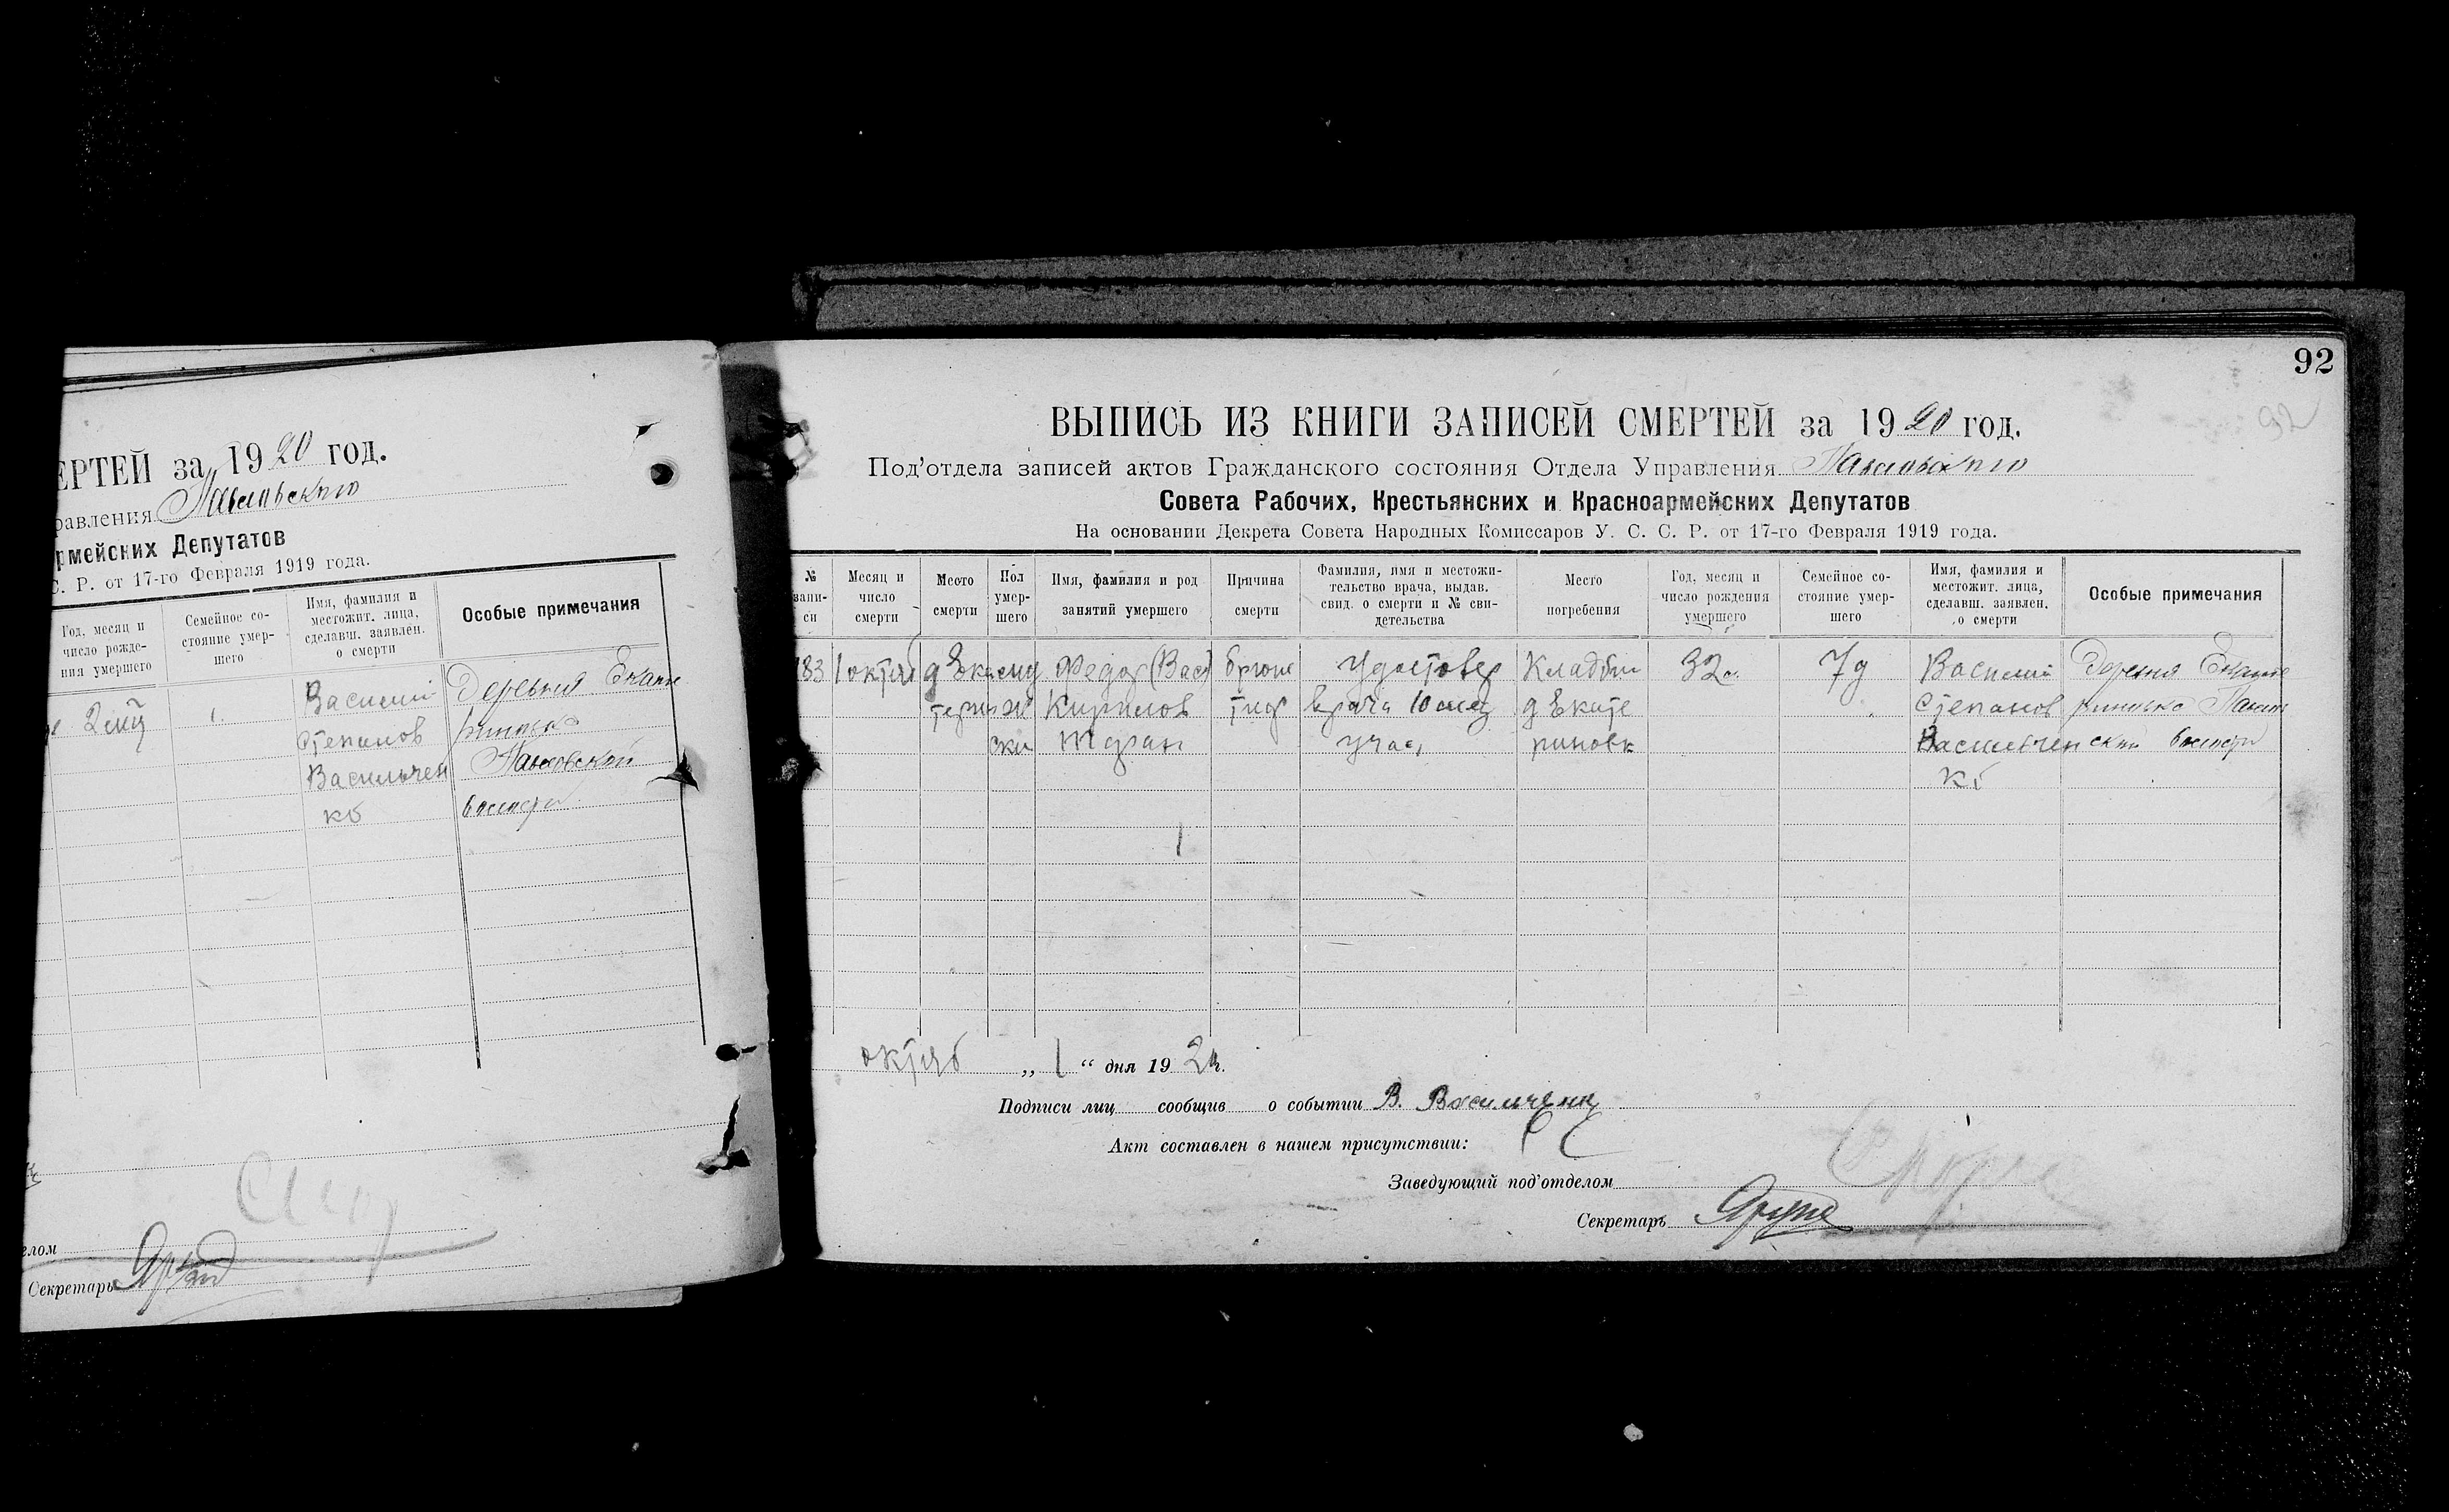 ЕРТЕЙ за 1920 год.
равления Павловского
рмейских Депутатов
С. Р. от 17-го Февраля 1919 года.
Год, месяц и число рожде- ния умершего
Семейное со- стояние умер- шего
Имя, фамилия и местожит. лица, сделавш. заявлен. о смерти
Особые примечания
Василий
Деревня Екате
Степанов
риновка
Васильчен
Павловской
ко
волости
елом
Секретарь
92
92
ВЫПИСЬ ИЗ КНИГИ ЗАПИСЕЙ СМЕРТЕЙ за 1920 год.
Под'отдела записей актов Гражданского состояния Отдела Управления Павловского
Совета Рабочих, Крестьянских и Красноармейских Депутатов
На основании Декрета Совета Народных Комиссаров У. С. С. Р. от 17-го Февраля 1919 года.
№ запи- си
Месяц и число смерти
Место смерти
Пол умер- шего
Имя, фамилия и род занятий умершего
Причина смерти
Фамилия, имя и местожи- тельство врача, выдав. свид. о смерти и № сви- детельства
Место погребения
Год, месяц и число рождения умершего
Семейное со- стояние умер- шего
Имя, фамилия и местожит. лица, сделавш. заявлен. о смерти
Особые примечания
183 1 октяб д Ека Федор (Вас) брюш Удостовер Кладби 32 7 Василий Деревня Екате
терин Кирилов тиф врача 10 д Екате Степанов риновка
ски учас риновк Васильчен ской волости
ко
октяб „ 1 “ дня 192
Подписи лиц сообщив о событии В. Васильченк
Акт составлен в нашем присутствии:
Заведующий под'отделом
Секретарь